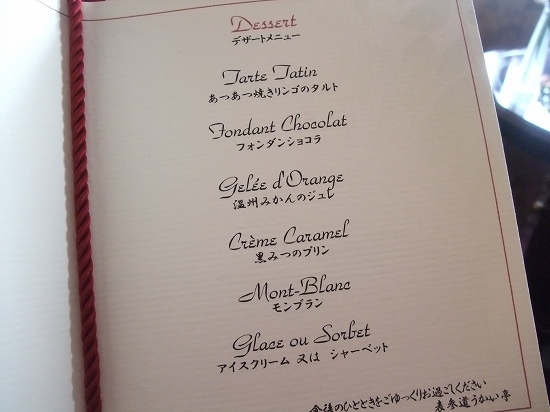 Dessert
デザートメニュー
Tarte Tatin
あつあつ焼きリンゴのタルト
Fondant Chocolat
フォンダンショコラ
Gelée d'Orange
温州みかんのジュレ
Crème Caramel
黒みつのプリン
Mont-Blanc
モンブラン
Glace ou Sorbet
アイスクリーム 又は シャーベット
食後のひとときをごゆっくりお過ごしください
表参道うかい亭